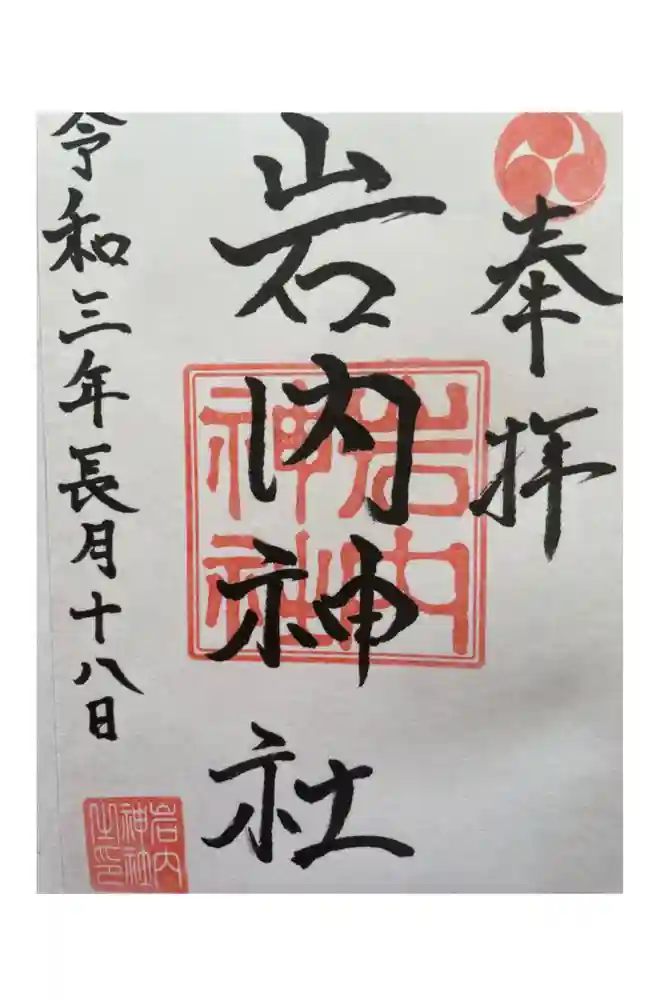 奉拝
岩内神社
岩内神社
令和三年長月十八日
岩内神社之印